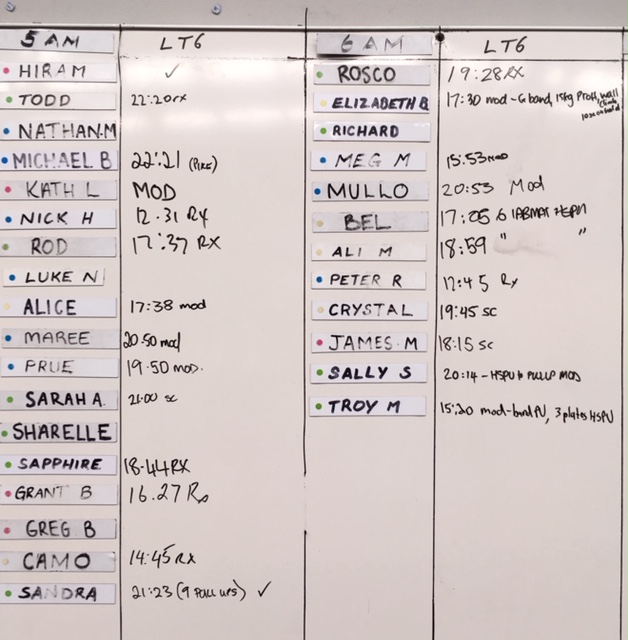 5 AM LT6
HIRAM ✓
TODD 22:20rx
NATHAN.M
MICHAEL B 22:21
KATH L MOD
NICK H 12.31 RX
ROD 17:37 RX
LUKE N
ALICE 17:38 mod
MAREE 20.50 mod
PRUE 19.50 mod.
SARAH A. 21:00 sc
SHARELLE
SAPPHIRE 18.44RX
GRANT B 16.27 Rx
GREG B
CAMO 14:45 RX
SANDRA 21:23 (9 PULL UPS) ✓
6 AM LT6
ROSCO 19:28RX
ELIZABETH B 17:30 mod - G band, 15kg
RICHARD
MEG M 15:53 mod
MULLO 20:53 Mod
BEL 17:05
ALI M 18:59 " "
PETER R 12:45 Rx
CRYSTAL 19:45 sc
JAMES.M 18:15 sc
SALLY S 20:14 - HSPU + PULLUP MOD
TROY M 15:20 mod-band PU, 3 plates HSPU